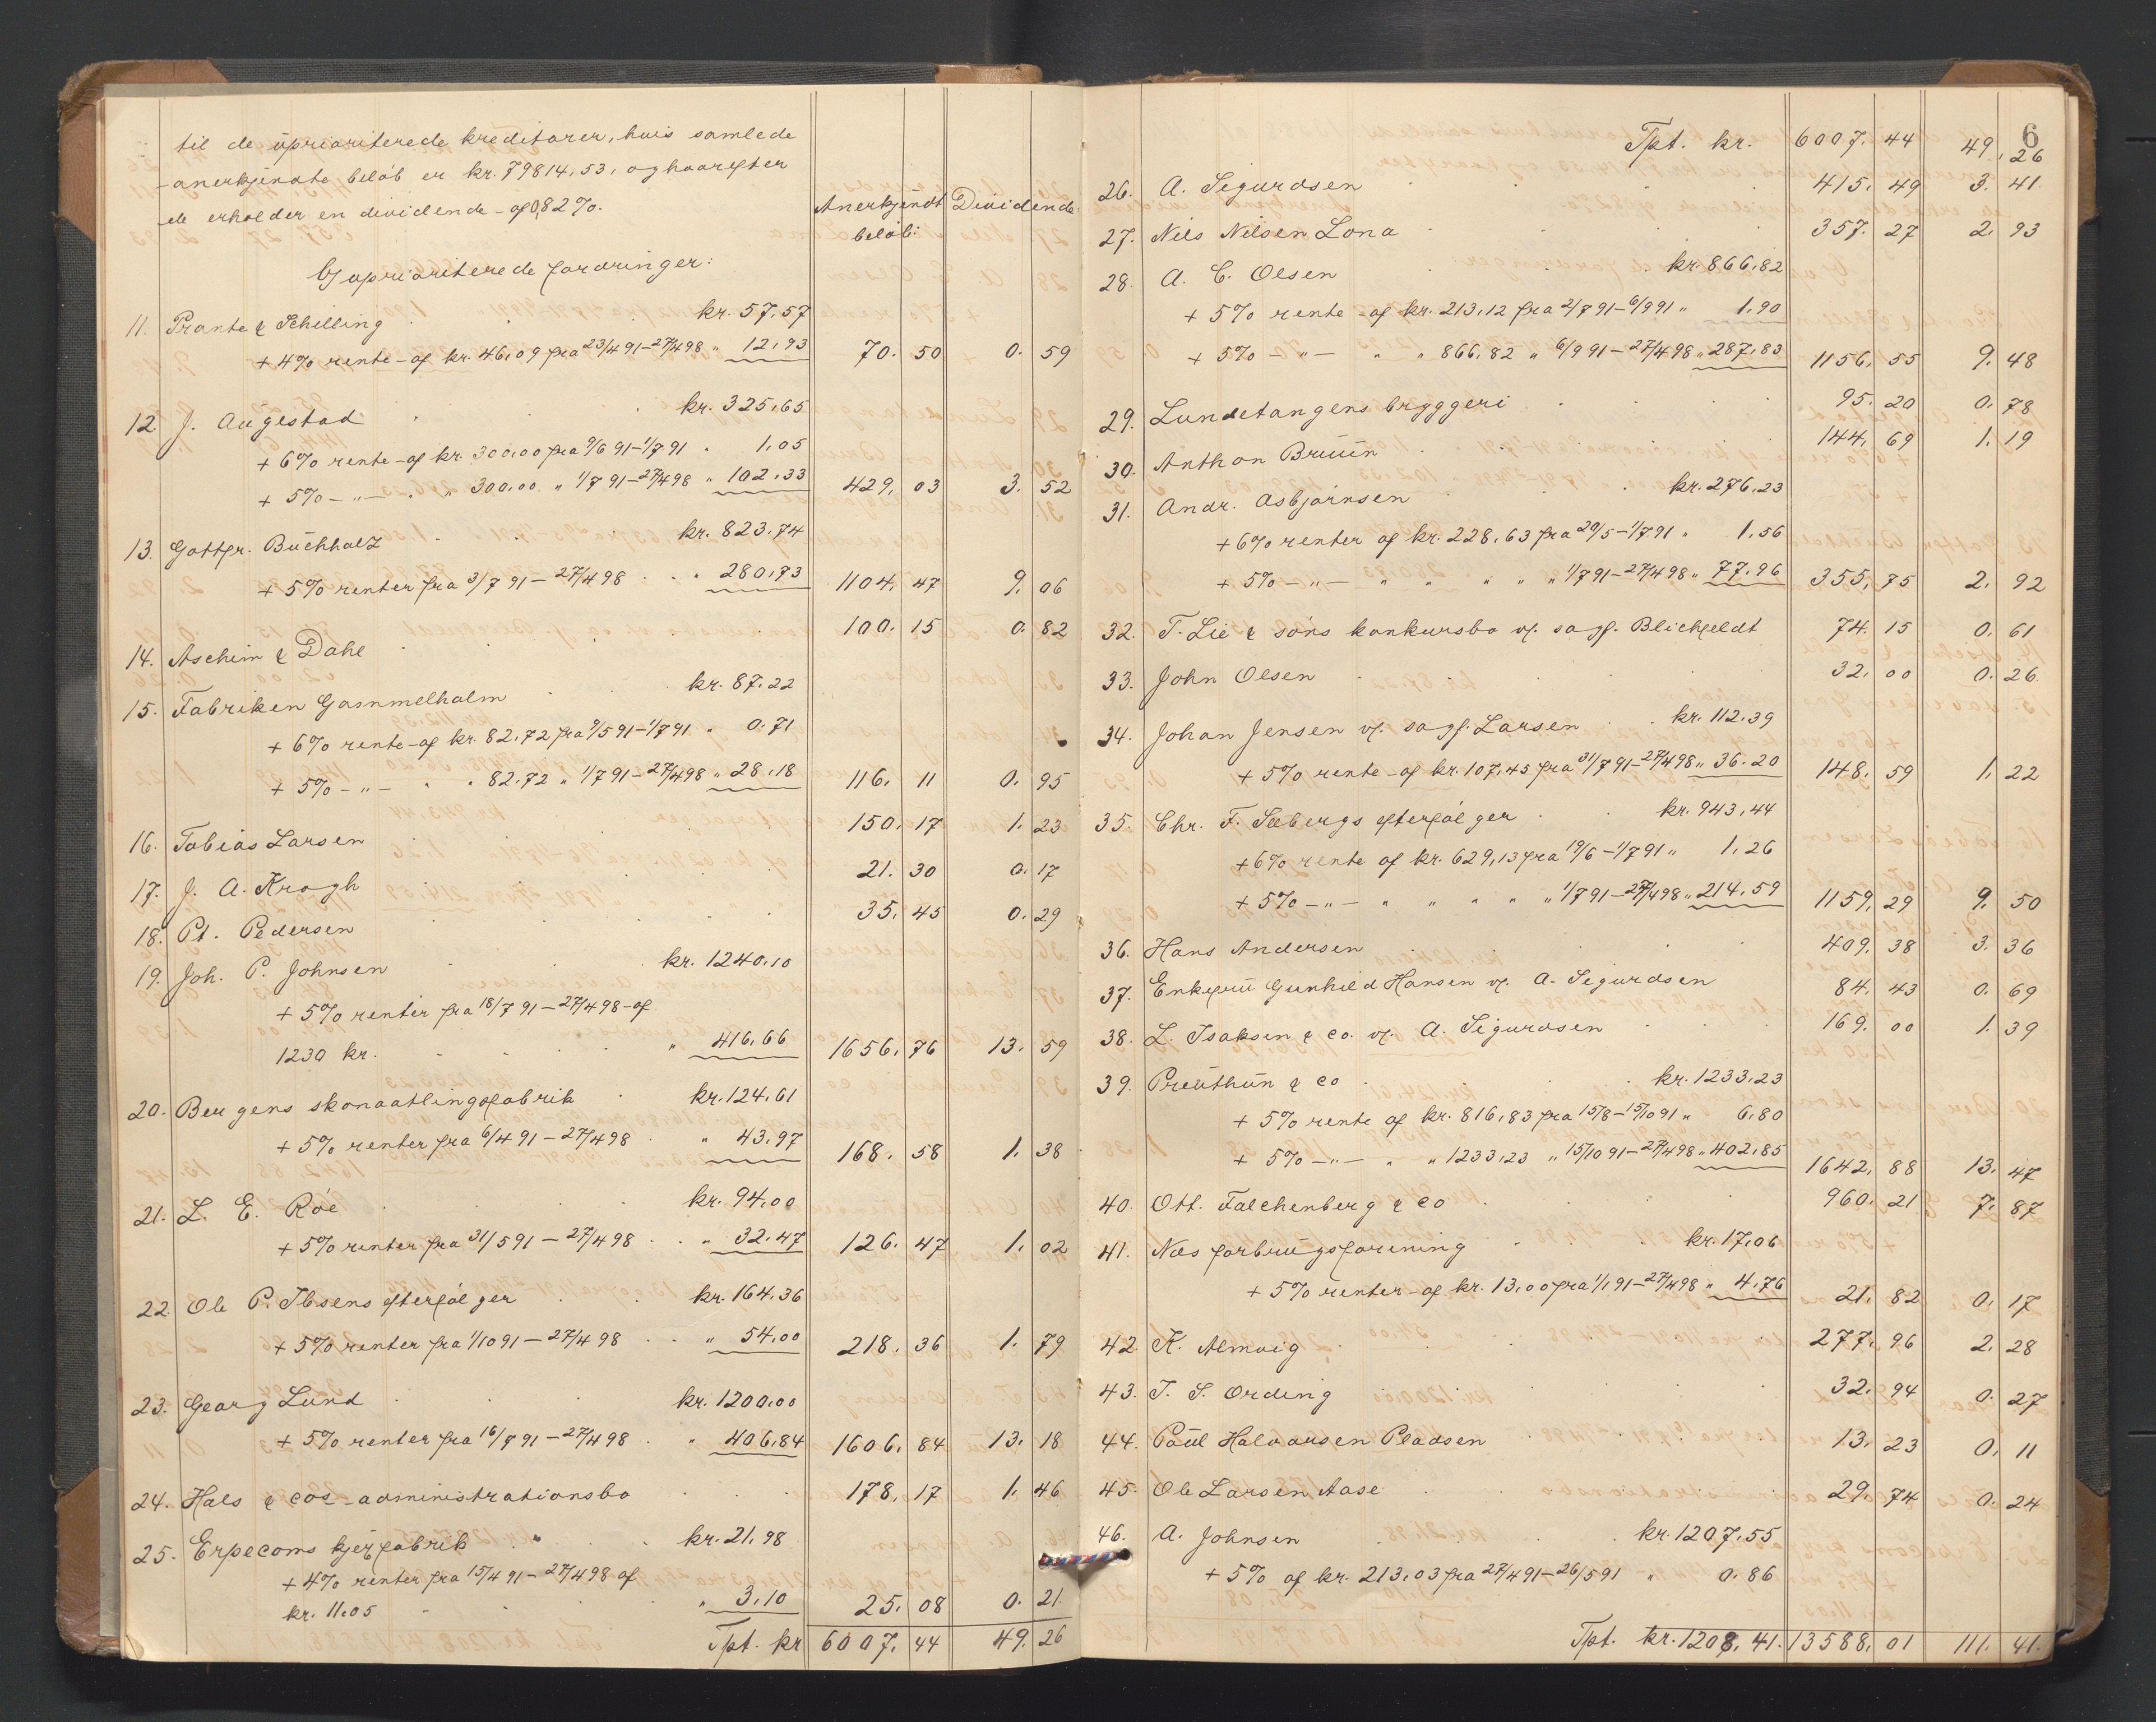 til de uprioriterede kreditorer, hvis samlede
anerkjendte beløb er kr. 79814,53, og hvorefter
de erholder en dividende af 0,82%.
Anerkjendt beløb: Dividende:
Uprioriterede fordringer:
11. Prante & Schilling kr. 57,57
+ 4% rente af kr. 46,09 fra 23/4 91 – 27/4 98 " 12,93 70. 50 0. 59
12. J. Augestad kr. 325,65
+ 6% rente af kr. 300,00 fra 9/6 91 – 1/7 91 " 1,05
+ 5% – " – " " 300,00 " 1/7 91 – 27/4 98 " 102,33 429. 03 3. 52
13. Gottfr. Buchholz kr. 823,74
+ 5% renter fra 3/7 91 – 27/4 98 " 280,73 1104. 47 9. 06
14. Ascheim & Dahl 100. 15 0. 82
15. Fabriken Gammelholm kr. 87,22
+ 6% rente af kr. 82,72 fra 9/5 91 – 1/7 91 " 0.71
+ 5% – " – " " 82,72 " 1/7 91 – 27/4 98 " 28,18 116. 11 0. 95
16. Tobias Larsen 150. 17 1. 23
17. J. A. Krogh 21. 30 0. 17
18. Pt. Pedersen 35. 45 0. 29
19. Joh. P. Johnsen kr. 1240,10
+ 5% renter fra 18/7 91 – 27/4 98 af
1230 kr. " 416,66 1656. 76 13. 59
20. Bergens skonaatlingsfabrik kr. 124,61
+ 5% renter fra 6/4 91 – 27/4 98 " 43,97 168. 58 1. 38
21. L. E. Röe kr. 94,00
+ 5% renter fra 31/5 91 – 27/4 98 " 32,47 126. 47 1. 02
22. Ole P. Ibsens efterfölger kr. 164,36
+ 5% renter fra 1/10 91 – 27/4 98 " 54,00 218. 36 1. 79
23. Georg Lund kr. 1200,00
+ 5% renter fra 16/7 91 – 27/4 98 " 406,84 1606. 84 13. 18
24. Hals & cos administrationsbo 178. 17 1. 46
25. Erpecoms kjexfabrik kr. 21,98
+ 4% renter fra 15/4 91 – 27/4 98 af
kr. 11.05 " 3,10 25. 08 0. 21
Tpt. kr 6007. 44 49. 26
6
Tpt. kr. 6007. 44 49. 26
26. A. Sigurdsen 415. 49 3. 41
27. Nils Nilsen Lona 357. 27 2. 93
28. A. C. Olsen kr. 866,82
+ 5% rente af kr. 213,12 fra 2/7 91 – 6/9 91 " 1,90
+ 5% – " – " " 866,82 " 6/9 91 – 27/4 98 " 287,83 1156. 55 9. 48
29. Lundetangens bryggeri 95. 20 0. 78
30. Anthon Bruun 144. 69 1. 19
31. Andr. Asbjørnsen kr. 276,23
+ 6% renter af kr. 228,63 fra 20/5 – 1/7 91 " 1,56
+ 5% – " – " " " " " 1/7 91 – 27/4 98 " 77,96 355. 75 2. 92
32. T. Lie & søns konkursbo v. sagf. Blichfeldt 74. 15 0. 61
33. John Olsen 32. 00 0. 26
34. Johan Jensen v. sagf. Larsen kr. 112,39
+ 5% rente af kr. 107,45 fra 31/7 91 – 27/4 98 " 36.20 148. 59 1. 22
35. Chr. F. Seebergs efterfölger kr. 943,44
+ 6% rente af kr. 629,13 fra 19/6 – 1/7 91 " 1,26
+ 5% – " – " " " " " 1/7 91 – 27/4 98 " 214,59 1159. 29 9. 50
36. Hans Andersen 409. 38 3. 36
37. Enkefru Gunhild Hansen v. A. Sigurdsen 84. 43 0. 69
38. L. Isaksen & co. v. A. Sigurdsen 169. 00 1. 39
39. Preuthun & co kr. 1233,23
+ 5% rente af kr. 816,83 fra 15/8 – 15/10 91 " 6,80
+ 5% – " – " " 1233,23 " 15/10 91 – 27/4 98 " 402,85 1642. 88 13. 47
40. Ott. Falchenberg & co 960. 21 7. 87
41. Næs forbrugsforening kr. 17,06
+ 5% renter af kr. 13,00 fra 1/1 91 – 27/4 98 " 4,76 21. 82 0. 17
42. K. Almvig 277. 96 2. 28
43. T. S. Ording 32. 94 0. 27
44. Paul Halvorsen Pladsen 13. 23 0. 11
45. Ole Larsen Aase 29. 74 0. 24
46. A. Johnsen kr. 1207,55
+ 5% af kr. 213,03 fra 27/4 91 – 26/5 91 " 0.86
Tpt. kr. 1208,41. 13588. 01 111. 41.